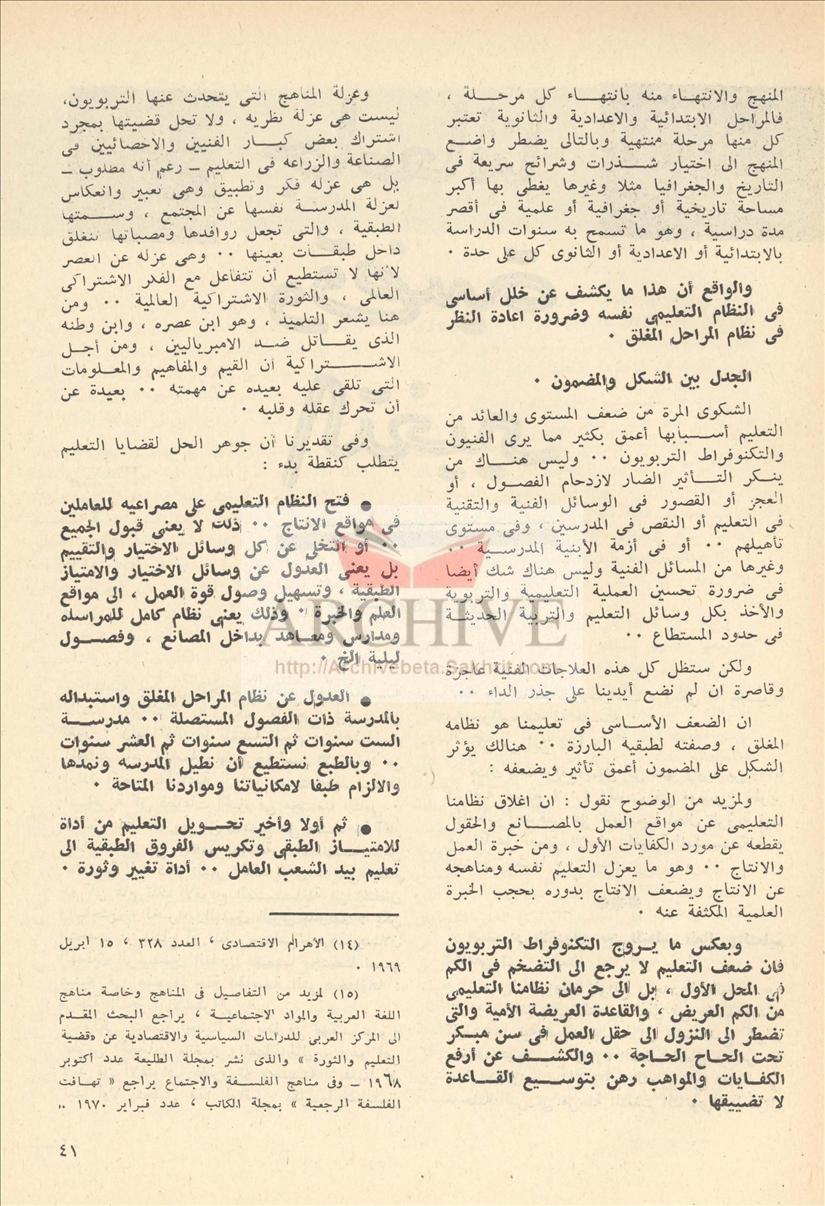 المنهج والانتهاء منه بانتهاء كل مرحلة ،
فالمراحل الابتدائية والاعدادية والثانوية تعتبر
كل منها مرحلة منتهية وبالتالى يضطر واضع
المنهج الى اختيار شذرات وشرائح سريعة فى
التاريخ والجغرافيا مثلا وغيرها يغطى بها أكبر
مساحة تاريخية أو جغرافية أو علمية فى أقصر
مدة دراسية ، وهو ما تسمح به سنوات الدراسة
بالابتدائية أو الاعدادية أو الثانوى كل على حدة ٠
والواقع أن هذا ما يكشف عن خلل أساسى
فى النظام التعليمى نفسه وضرورة اعادة النظر
فى نظام المراحل المغلق ٠
الجدل بين الشكل والمضمون ٠
الشكوى المرة من ضعف المستوى والعائد من
التعليم أسبابها أعمق بكثير مما يرى الفنيون
والتكنوقراط التربويون ٠٠ وليس هناك من
ينكر التأثير الضار لازدحام الفصول ، أو
العجز أو القصور فى الوسائل الفنية والتقنية
فى التعليم أو النقص فى المدرسين ، وفى مستوى
تأهيلهم ٠٠ أو فى أزمة الأبنية المدرسية ٠٠
وغيرها من المسائل الفنية وليس هناك شك أيضا
فى ضرورة تحسين العملية التعليمية والتربوية
والأخذ بكل وسائل التعليم والتربية الحديثة
فى حدود المستطاع ٠٠
ولكن ستظل كل هذه العلاجات الفنية عاجزة
وقاصرة ان لم نضع أيدينا على جذر الداء ٠٠
ان الضعف الأساسى فى تعليمنا هو نظامه
المغلق ، وصفته لطبقيه البارزة ٠٠ هنالك يؤثر
الشكل على المضمون أعمق تأثير ويضعفه :
ولمزيد من الوضوح نقول : ان اغلاق نظامنا
التعليمى عن مواقع العمل بالمصانع والحقول
يقطعه عن مورد الكفايات الأول ، ومن خبرة العمل
والانتاج ٠٠ وهو ما يعزل التعليم نفسه ومناهجه
عن الانتاج ويضعف الانتاج بدوره بحجب الخبرة
العلمية المكثفة عنه ٠
وبعكس ما يروج التكنوقراط التربويون
فان ضعف التعليم لا يرجع الى التضخم فى الكم
فى المحل الأول ، بل الى حرمان نظامنا التعليمى
من الكم العريض ، والقاعدة العريضة الأمية والتى
تضطر الى النزول الى حقل العمل فى سن مبكر
تحت الحاح الحاجة ٠٠ والكشف عن أرفع
الكفايات والمواهب رهن بتوسيع القاعدة
لا تضييقها ٠
وعزلة المناهج التى يتحدث عنها التربويون،
ليست هى عزلة نظريه ، ولا تحل قضيتها بمجرد
اشتراك بعض كبار الفنيين والاخصائيين فى
الصناعة والزراعه فى التعليم ـ رغم أنه مطلوب ـ
بل هى عزله فكر وتطبيق وهى تعبير وانعكاس
لعزلة المدرسة نفسها عن المجتمع ، وسمتها
الطبقية ، والتى تجعل روافدها ومصباتها تنغلق
داخل طبقات بعينها ٠٠ وهى عزله عن العصر
لأنها لا تستطيع أن تتفاعل مع الفكر الاشتراكى
العالمى ، والثورة الاشتراكية العالمية ٠٠ ومن
هنا يشعر التلميذ ، وهو ابن عصره ، وابن وطنه
الذى يقاتل ضد الامبرياليين ، ومن أجل
الاشتراكية أن القيم والمفاهيم والمعلومات
التى تلقى عليه بعيده عن مهمته ٠٠ بعيدة عن
أن تحرك عقله وقلبه ٠
وفى تقديرنا أن جوهر الحل لقضايا التعليم
يتطلب كنقطة بدء :
● فتح النظام التعليمى على مصراعيه للعاملين
فى مواقع الانتاج ٠٠ ذلك لا يعنى قبول الجميع
٠٠ أو التخلى عن كل وسائل الاختيار والتقييم
بل يعنى العدول عن وسائل الاختيار والامتياز
الطبقية ، وتسهيل وصول قوة العمل ، الى مواقع
العلم والخبرة ٠ وذلك يعنى نظام كامل للمراسله
ومدارس ومعاهد بداخل المصانع ، وفصول
ليلية الخ ٠
● العدول عن نظام المراحل المغلق واستبداله
بالمدرسة ذات الفصول المتصلة ٠٠ مدرسة
الست سنوات ثم التسع سنوات ثم العشر سنوات
٠٠ وبالطبع نستطيع أن نطيل المدرسه ونمدها
والالزام طبقا لامكانياتنا ومواردنا المتاحة ٠
● ثم أولا وأخير تحويل التعليم من أداة
للامتياز الطبقى وتكريس الفروق الطبقية الى
تعليم بيد الشعب العامل ٠٠ أداة تغيير وثورة ٠
(١٤) الأهرام الاقتصادى ، العدد ٣٢٨ ، ١٥ ابريل
١٩٦٩ ٠
(١٥) لمزيد من التفاصيل فى المناهج وخاصة مناهج
اللغة العربية والمواد الاجتماعية ، يراجع البحث المقدم
الى المركز العربى للدراسات السياسية والاقتصادية عن «قضية
التعليم والثورة » والذى نشر بمجلة الطليعة عدد أكتوبر
١٩٦٨ ـ وفى مناهج الفلسفة والاجتماع يراجع « تهافت
الفلسفة الرجعية » بمجلة الكاتب ، عدد فبراير ١٩٧٠ ..
٤١
ARCHIVE
http://Archivebeta.Sakhrit.com